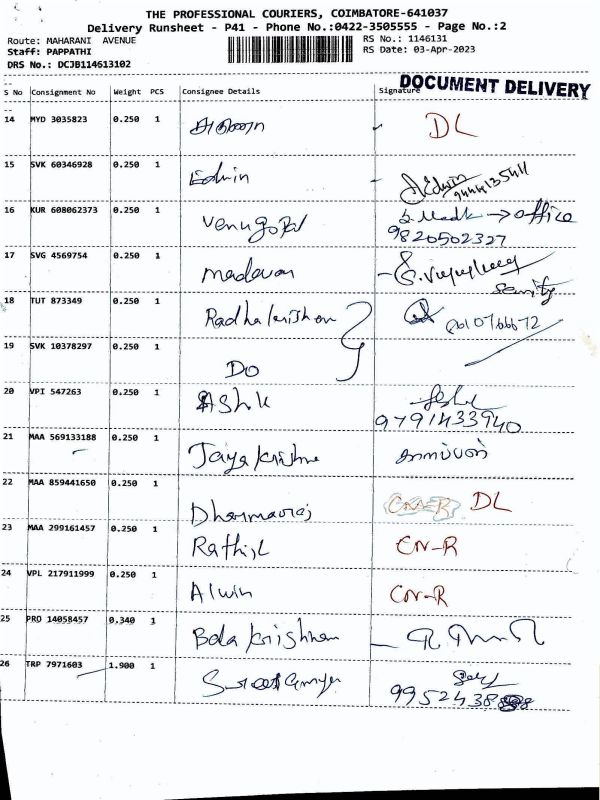 THE PROFESSIONAL COURIERS, COIMBATORE-641037
Delivery Runsheet - P41 - Phone No.:0422-3505555 - Page No.:2
Route: MAHARANI AVENUE
RS No.: 1146131
Staff: PAPPATHI
RS Date: 03-Apr-2023
DRS No.: DCJB114613102
DOCUMENT DELIVERY
S No Consignment No Weight PCS Consignee Details Signature
14 MYD 3035823 0.250 1 DL
15 SVK 60346928 0.250 1 Edwin Edwin
9444135411
16 KUR 608062373 0.250 1 Venugopal → office
9820502327
17 SVG 4569754 0.250 1 Madavan
Security
18 TUT 873349 0.250 1 Radhakrishnan
19 SVK 10378297 0.250 1
DO
20 VPI 547263 0.250 1 AShik
9791433940
21 MAA 569133188 0.250 1 Jayakrishna
22 MAA 859441650 0.250 1 Dharmaraj DL
23 MAA 299161457 0.250 1 Rathish CN-R
24 VPL 217911999 0.250 1 Alwin CN-R
25 PRO 14058457 0.340 1 Balakrishnan
26 TRP 7971603 1.900 1